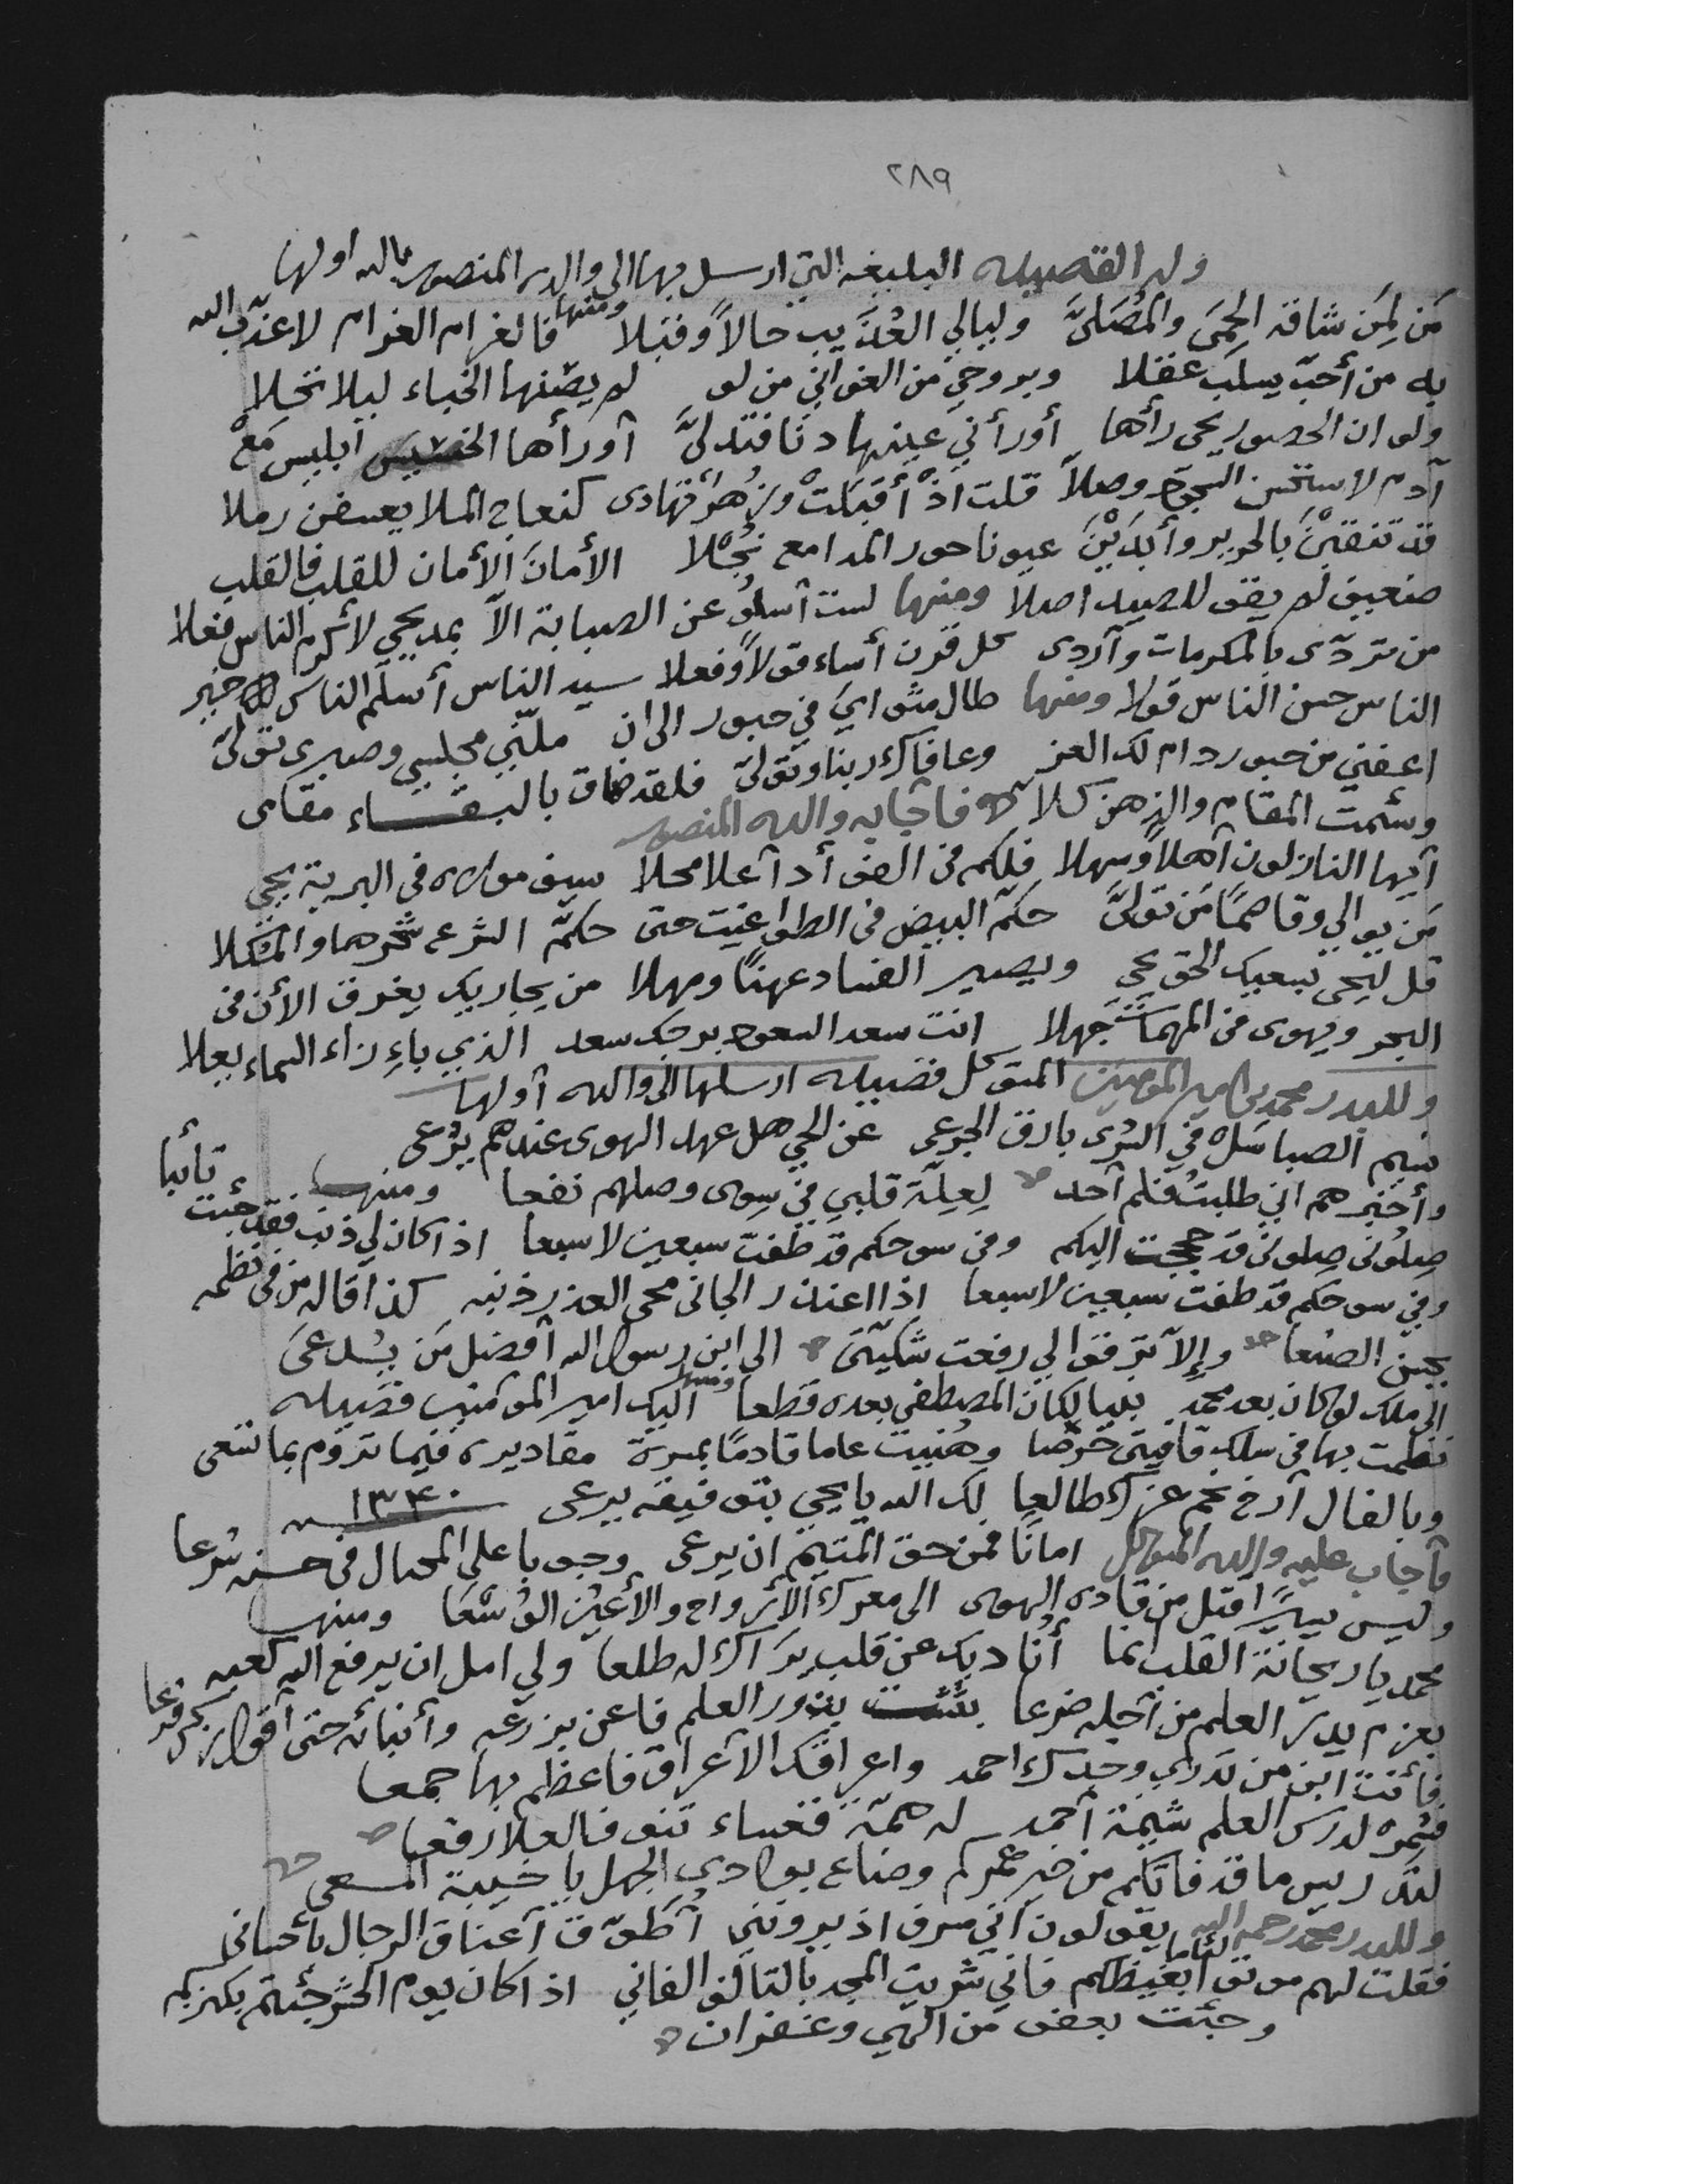 ٢٨٩
وله القصيده البليغه التي ارسل بها الى والده المنصور بالله اولها
مَن لِمَن شاقه الحِمَى والمُصَلىَّ وليالي العُذَيب حالاً وقبلا ومنها فالغرام الغرام لا عذّب الله
به من أحبّ يسلب عقلا وبروحي من الغواني من لو لم يصنها الخباء ليلا تخلا
ولو ان الحصور يحى رأها أو رأني عينها دنا فتدلىَّ أو رأها ابليس مَعْ
آدم لاستحسن السجود وصلاَّ قلت اذْ أقبلَتْ وزُهرٌ تهادى كنعاج الملا يعسفن رملا
قد تنقبْنَ بالحرير وأبدَيْنَ عيونا حور المدامع نُجْلا الأمانَ الأمان للقلب فالقلب
ضعيف لم يقو للصيد اصلا ومنها لست أسلو عن الصبابة الاّ بمديحي لأكرم الناس فعلا
من تردّى بالمكرمات وأردى كل قرن أساء قولاً وفعلا سيد الناس أسلم الناس خير
الناس حسن الناس قولا ومنها طال مثواي في حبور الى ان ملّني مجلسي وصبري تولىّ
اعفني من حبور دام لك العز وعافاك ربنا وتولىّ فلقد ضاق بالبقاء مقامى
وسئمت المقام والذهن كلاّ فأجابه والده المنصور
أيها النازلون أهلاً وسهلا فلكم في الفؤاد أعلا محلا سيف مولاه في البرية يحيى
مَن يوالي وقاصمًا مَن تولىَّ حكّم البيض في الطواغيت حتى حكّم الشرع شرها والمثلا
قل ليحى بسعيك الحق يحيى ويصير الفساد عهنًا ومهلا من يجاريك يغرق الأن في
البحر ويهوى في المهمات جهلا انت سعد السعود برجك سعد الذي بإزاء السماء يعلا
وللبدر محمد بن امير المومنين المتوكل قصيده ارسلها الى والده أولها
نسيم الصبا سَل في السُرى بارق الجرعى عن الحي هل عهد الهوى عندهم يُرعى
وأخبرهم اني طلبتُ فلم أجد لِعِلّة قلبي في سِوى وصلهم نفعا ومنها
صِلُوني صِلوني قد حججت اليكم وفي سوحكم قد طفت سبعين لا سبعا اذا كان لي ذنب فقد جئت تائبا
وفي سوحكم قد طفت سبعين لا سبعا اذا اعتذر الجانى محى العذر ذنبه كذا قاله من في نظمه
يحسن الصنعا وإلاّ ترقوا لي رفعت شكيّتى الى ابن رسول الله أفضل مَن يُدعىَ
الى ملك لو كان بعد محمد نبيا لكان المصطفى بعده قطعا ومنها اليك امير المومنين قصيده
نظمت بها في سلك قافيتى وهُنيت عاما قادمًا بمسرة مقاديره فيما تروم بما تسعى
وبالفال أرخ نجم عزك طالعا لك الله يا يحيى بتوفيقه يرعى ١٣٤٠
فأجاب عليه والده المتوكل امانًا فمن حق المتيم ان يرعى وجوبا على المحتال في حسنه شرعا
وليس سِيَّرا قتل من قاده الهوى الى معرك الأرواح والأعين الوُسْعَا ومنها
محمد يا ريحانة القلب انما أُناديك عن قلب يَراك له طلعا ولي امل ان يرفع الله كعبه
بعزم يدرّ العلم من أجله ضرعا بذور العلم فاعن بزرعه وأنبائه حتى أقول
فأنت ابن من تدري وجدك احمد واعراقك الاعراق فاعظم بها جمعا
فشمّر لدرس العلم شيمة أحمد له همّة قعساء تنوف العلا رفعا
لتدريس ما قد فاتكم من خير عمركم وضاع بوادي الجهل يا خيبة المسعى
وللبدر محمد رحمه الله يقولون اني مسرف اذ يرونني أطوّق أعناق الرجال بأحسانى
فقلت لهم موتوا لئاما بغيظكم فاني شريت المجد بالتالف الفاني اذا كان يوم الحشر جئتم بكنزكم
وجئت بعفو من الهي وغفران